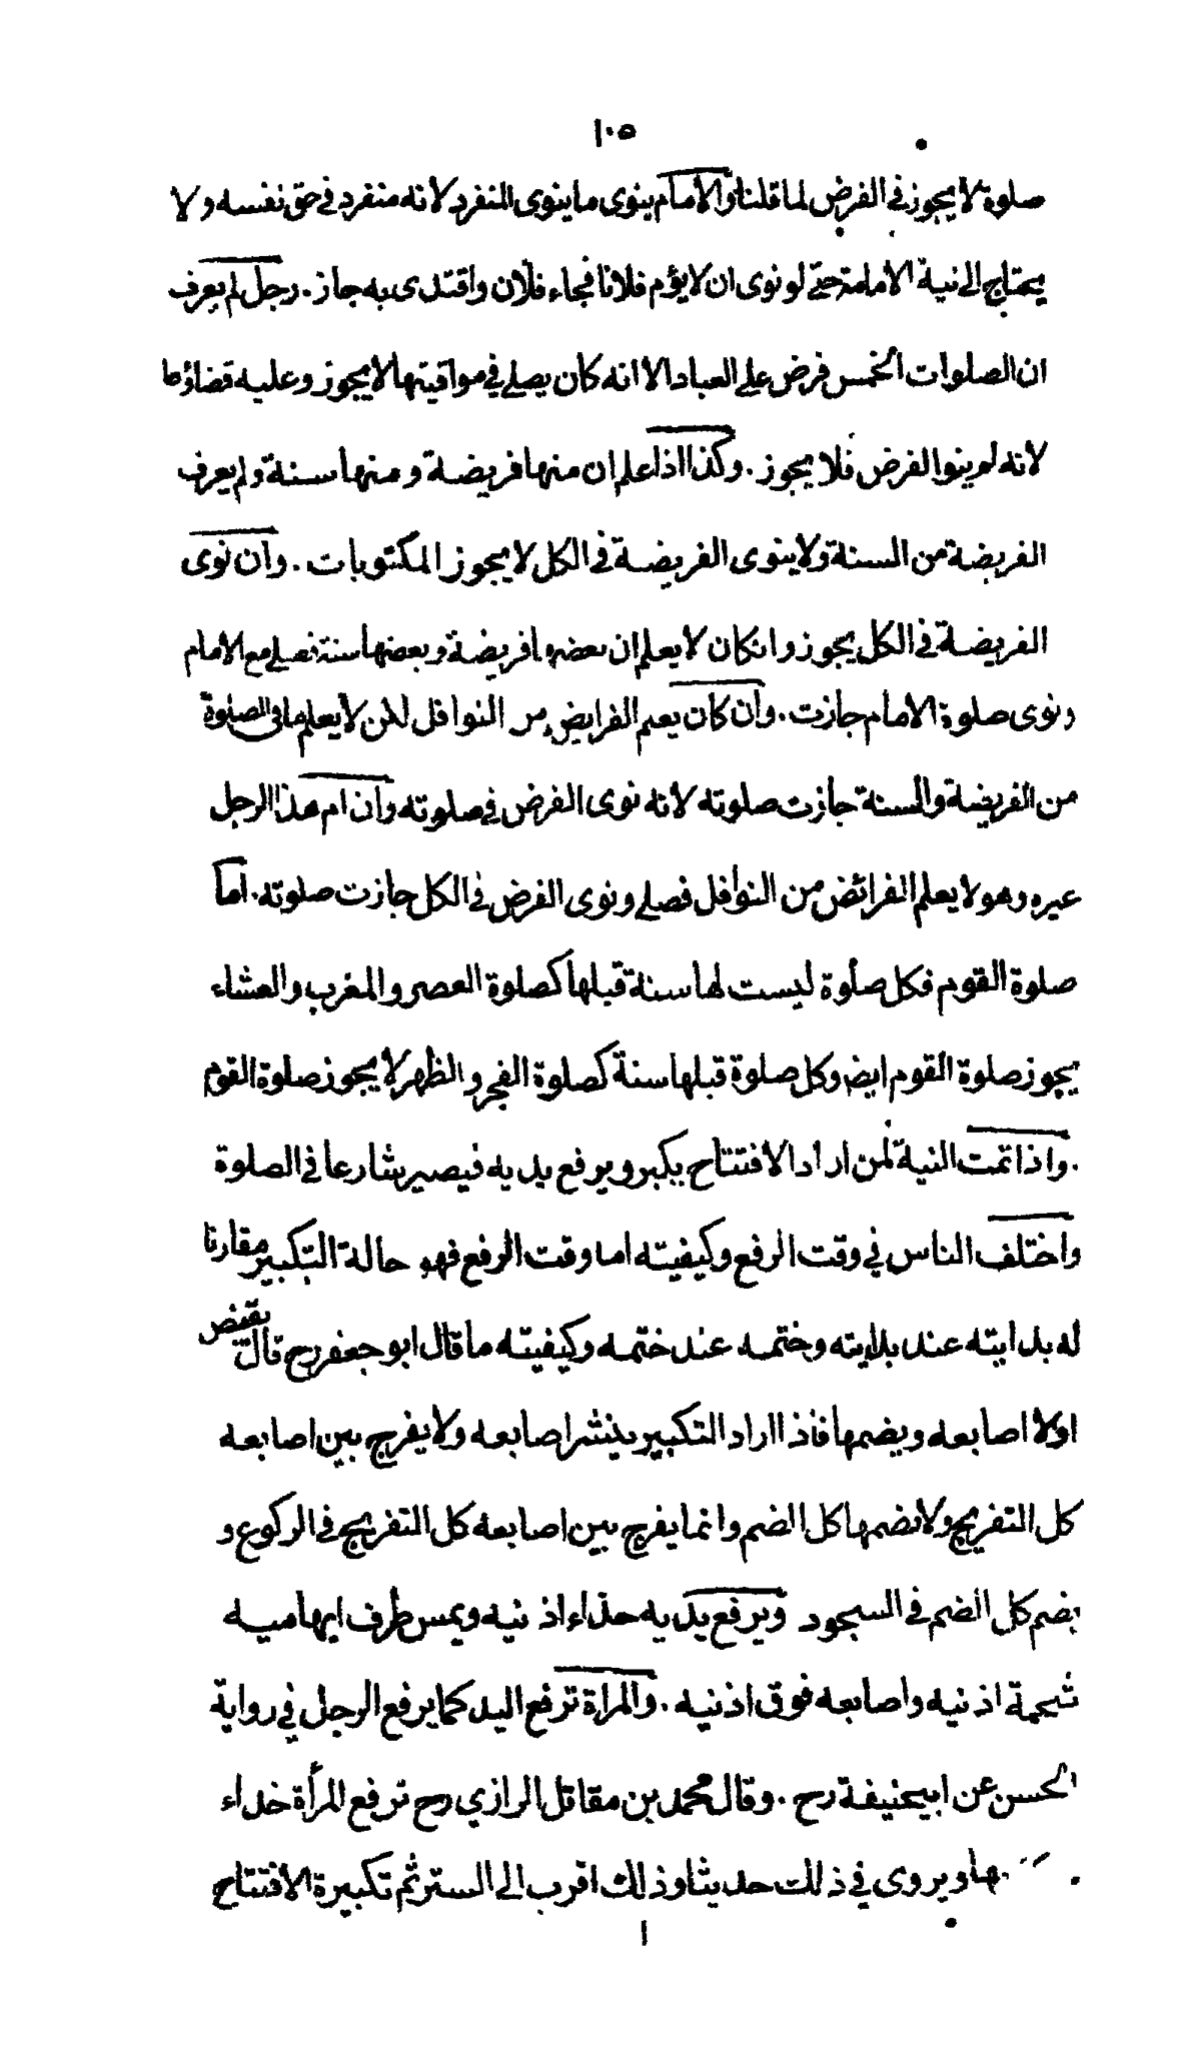 ١٠٥
صلوة لا يجوز في الفرض لما قلنا والامام ينوى ما ينوى المنفرد لانه منفرد في حق نفسه ولا
يحتاج الى نية الامامة حتى لو نوى ان لا يؤم فلانا فجاء فلان واقتدى به جاز. رجل لم يعرف
ان الصلوات الخمس فرض على العباد الا انه كان يصلي في مواقيتها لا يجوز وعليه قضاؤها
لانه لم ينو الفرض فلا يجوز. وكذا اذا علم ان منها فريضة ومنها سنة ولم يعرف
الفريضة من السنة ولا ينوى الفريضة في الكل لا يجوز المكتوبات. وان نوى
الفريضة في الكل يجوز وانكان لا يعلم ان بعضها فريضة وبعضها سنة فصلى مع الامام
ونوى صلوة الامام جازت. وان كان يعم الفرايض من النوافل لكن لا يعلم ما في الصلوة
من الفريضة والسنة جازت صلوته لانه نوى الفرض في صلوته وان ام هذا الرجل
غيره وهو لا يعلم الفرائض من النوافل فصلى ونوى الفرض في الكل جازت صلوته. اما
صلوة القوم فكل صلوة ليست لها سنة قبلها كصلوة العصر والمغرب والعشاء
يجوز صلوة القوم ايض وكل صلوة قبلها سنة كصلوة الفجر والظهر لا يجوز صلوة القوم
. واذا تمت النية لمن اراد الافتتاح يكبر ويرفع يديه فيصير شارعا في الصلوة
واختلف الناس في وقت الرفع وكيفيته اما وقت الرفع فهو حالة التكبير مقارنا
له بدايته عند بدايته وختمه عند ختمه وكيفيته ما قال ابو جعفر رح قال يقبض
اولا اصابعه ويضمها فاذا اراد التكبير ينشر اصابعه ولا يفرج بين اصابعه
كل التفريج ولا يضمها كل الضم وانما يفرج بين اصابعه كل التفريج في الركوع و
يضم كل الضم في السجود ويرفع يديه حذاء اذنيه ويمس طرف ابهاميه
شحمة اذنيه واصابعه فوق اذنيه. والمراة ترفع اليد كما يرفع الرجل في رواية
الحسن عن ابيحنيفة رح. وقال محمد بن مقاتل الرازي رح ترفع المرأة حذاء
ويروى في ذلك حديثا وذلك اقرب الى الستر ثم تكبيرة الافتتاح